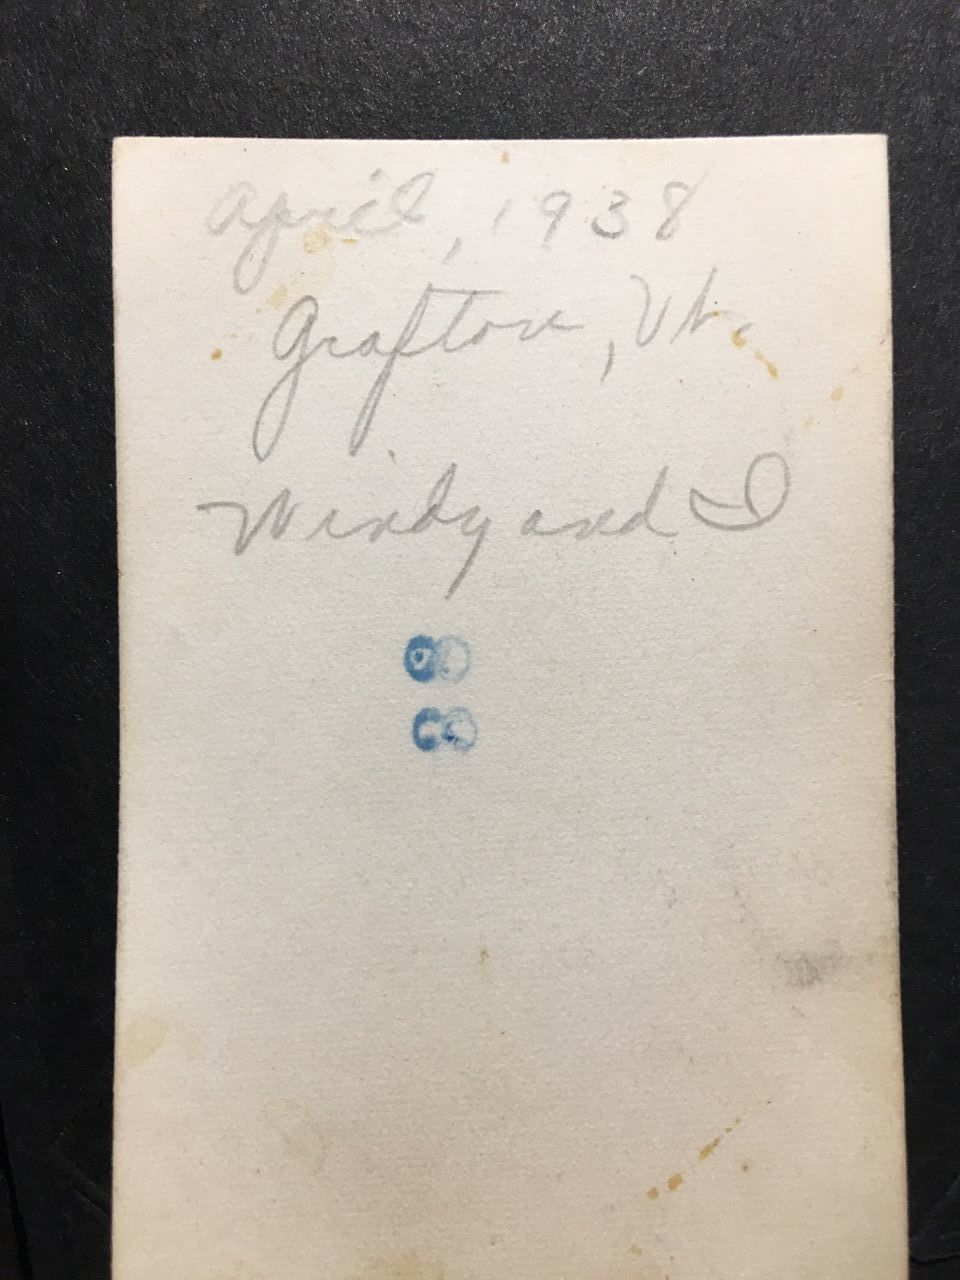 April, 1938
Grafton, Vt.
Windy and I